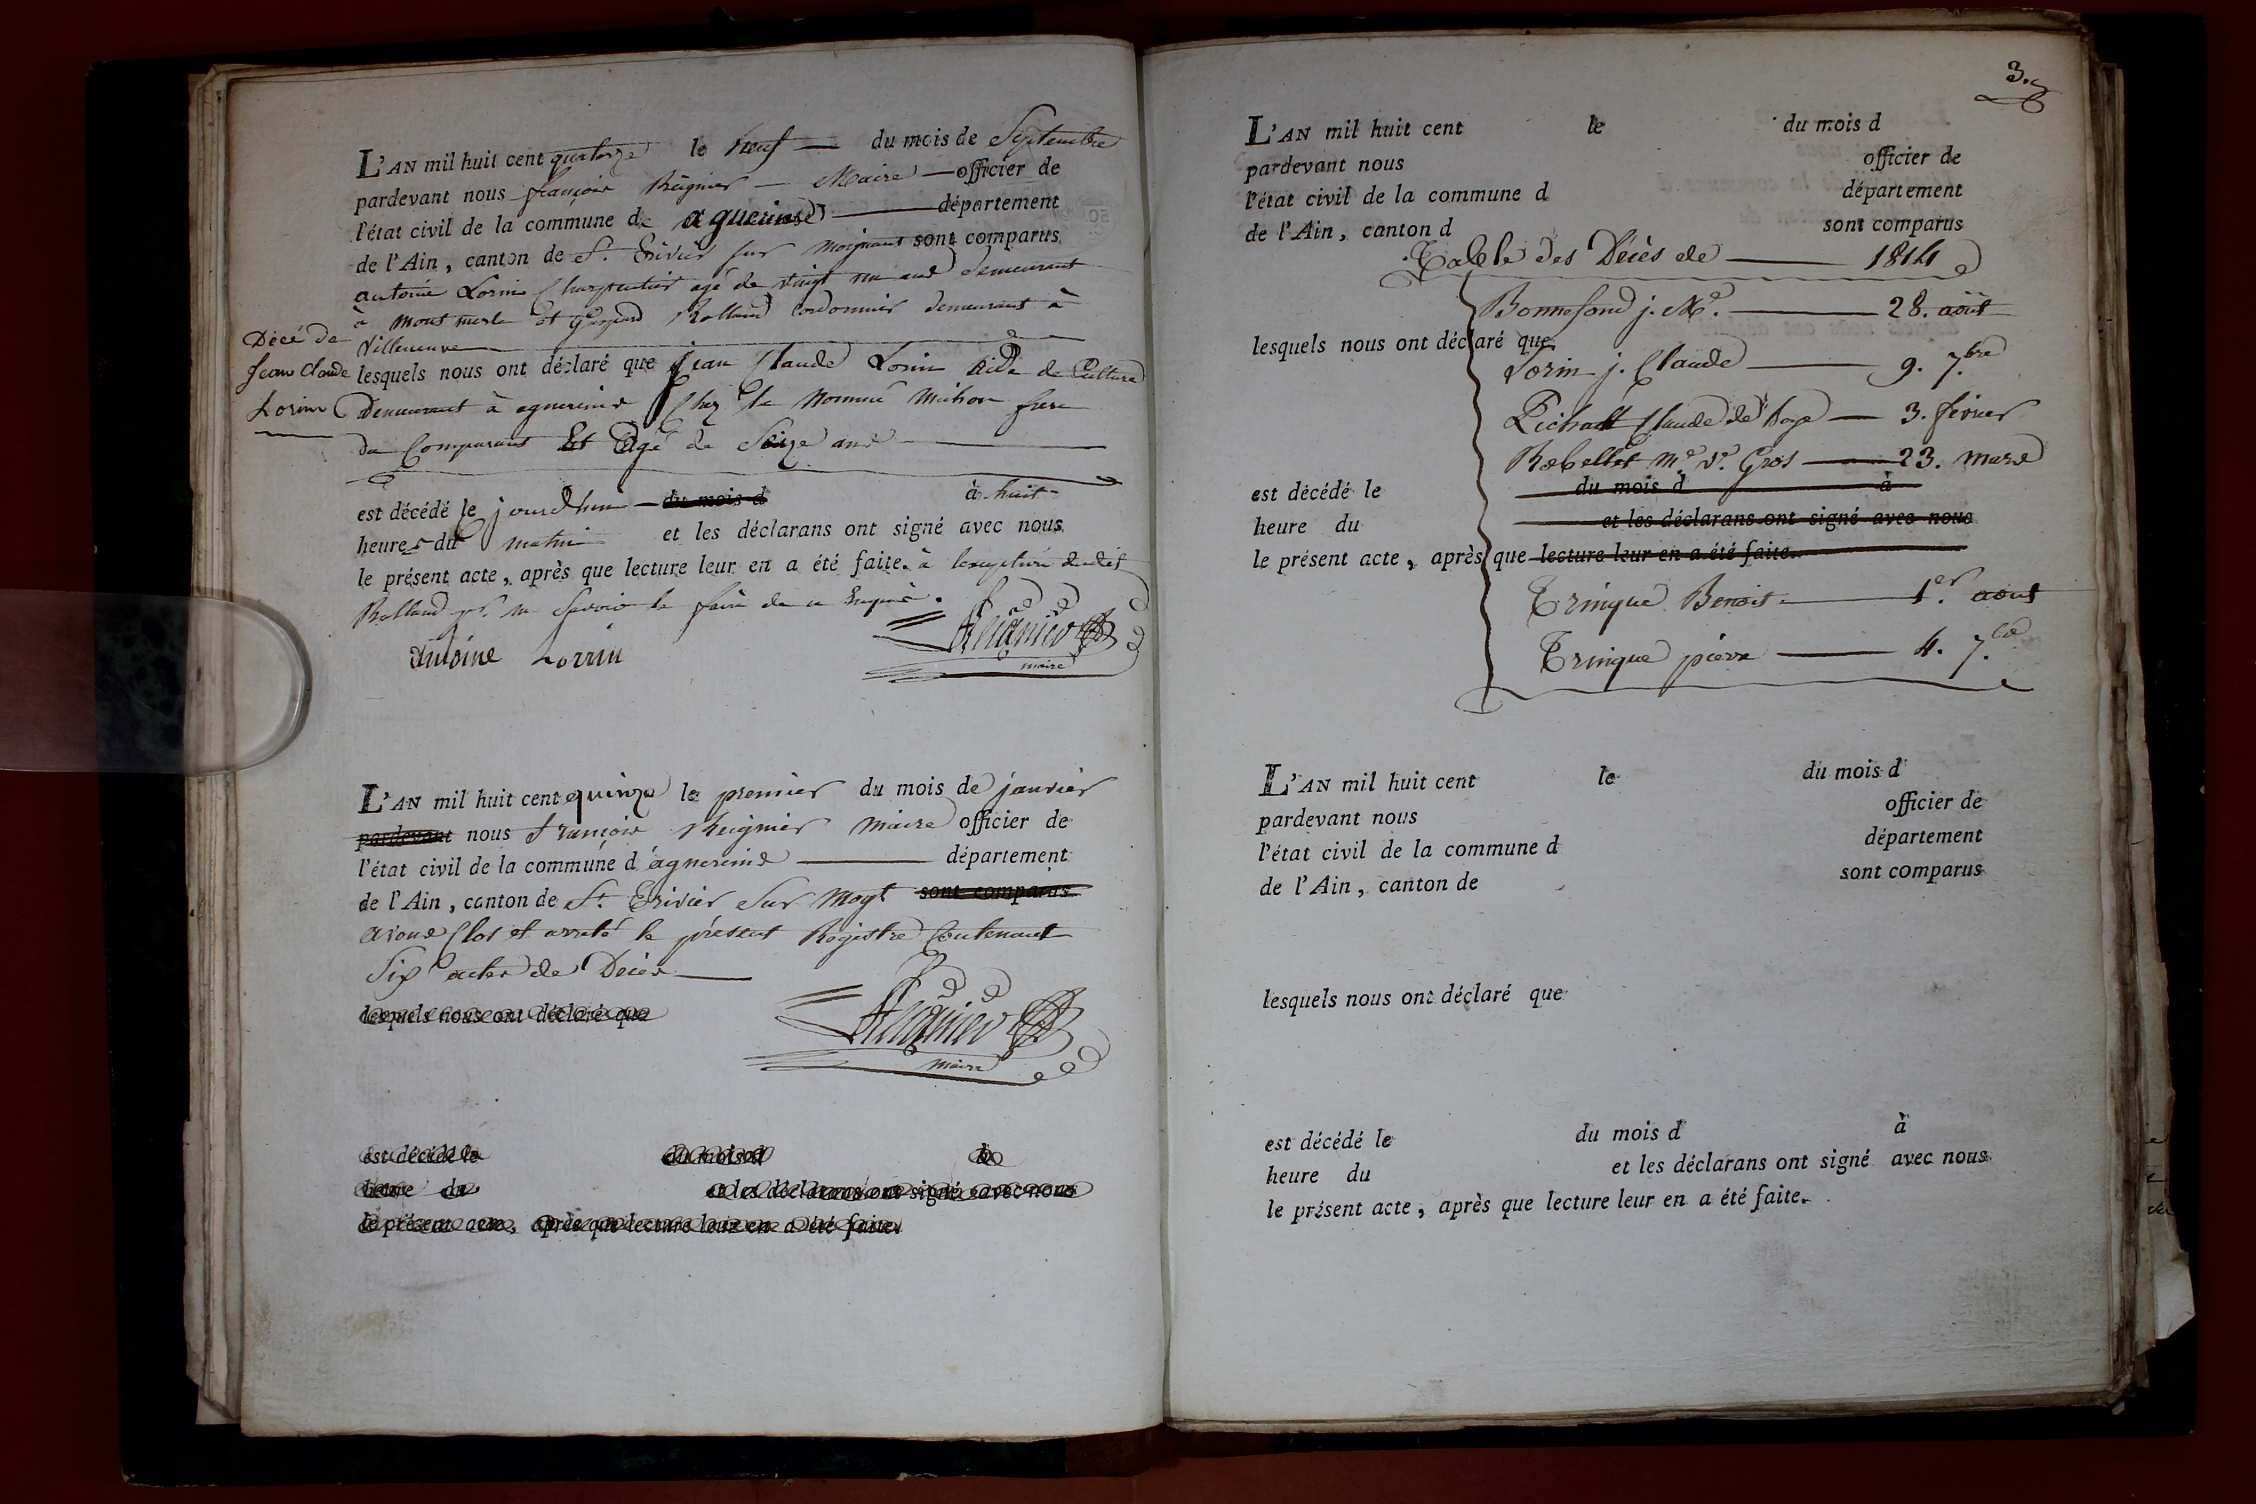 L'AN mil huit cent quatorze le neuf du mois de Septembre
pardevant nous françois Reignier Maire officier de
l'état civil de la commune de agnereins département
de l'Ain, canton de St. Trivier sur moignans sont comparus
antoine Lorin Charpentier agé de vingt un ans demeurant
à mont merle et gaspard Rolland Cordonnier demeurant à
villeneuve
Décé de
Jean Claude
Lorin
lesquels nous ont déclaré que jean Claude Lorin aide de Culture
Demeurant à agnereins Chez le nommé Michon frere
du Comparant Et Agé de Seize ans
est décédé le jourdhui du mois d à huit
heures du matin et les déclarans ont signé avec nous
le présent acte, après que lecture leur en a été faite. à lexception dudit
Rolland pr. ne Savoir le faire de ce Enquis.
Antoine Lorrin
Reignier
maire
L'AN mil huit cent quinze le premier du mois de janvier
pardevant nous françois Reignier maire officier de
l'état civil de la commune d'agnereins département
de l'Ain, canton de St. Trivier Sur Moygt sont comparus
avons Clos et arreté le présent Registre Contenant
Six actes de Décès
lesquels nous ont déclaré que
Reignier
maire
est décédé le du mois d à
heure du et les déclarans ont signé avec nous
le présent acte, après que lecture leur en a été faite.
3.
L'AN mil huit cent le du mois d
pardevant nous officier de
l'état civil de la commune d département
de l'Ain, canton d sont comparus
Table des Décès de 1814
Bonnefond j. Me. 28. août
lesquels nous ont déclaré que
Lorin j. Claude 9. 7.bre
Pichatt Claude de Boye 3. février
Rebellet Me. Ve. Gros 23. mars
est décédé le du mois d à
heure du et les déclarans ont signé avec nous
le présent acte, après que lecture leur en a été faite.
Trinque Benoit 1er. aout
Trinque pierre 4. 7.bre
L'AN mil huit cent le du mois d
pardevant nous officier de
l'état civil de la commune d département
de l'Ain, canton de sont comparus
lesquels nous ont déclaré que
est décédé le du mois d à
heure du et les déclarans ont signé avec nous
le présent acte, après que lecture leur en a été faite.